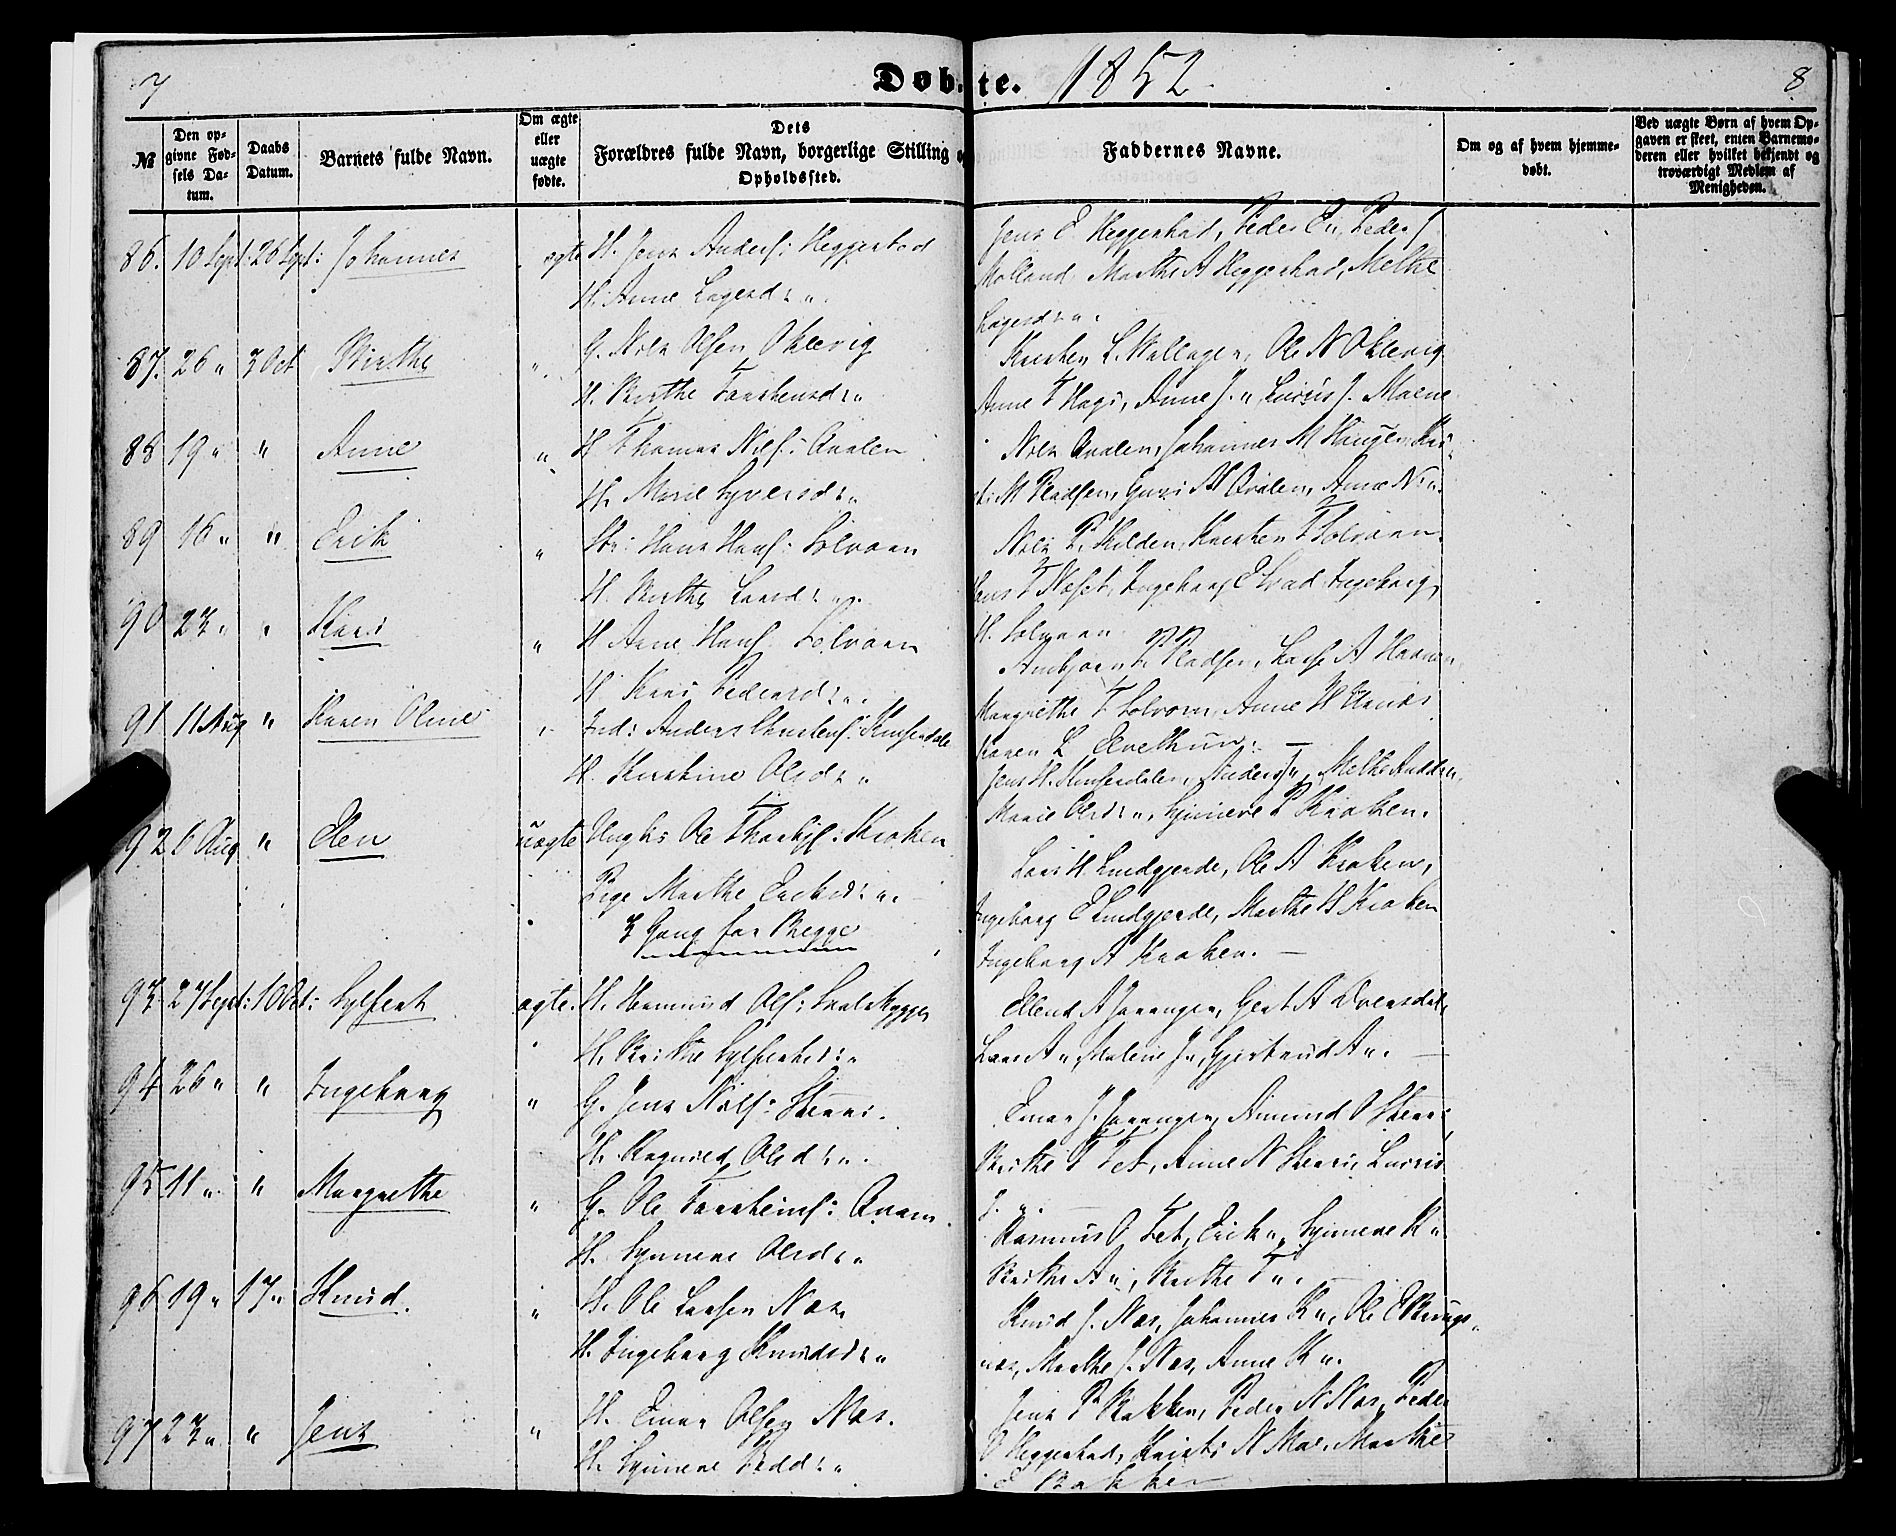 7
Døbte. 1852.
8
№
Den opgivne Fødsels Datum.
Daabs Datum.
Barnets fulde Navn.
Om ægte eller uægte fødte.
Dets Forældres fulde Navn, borgerlige Stilling o
Opholdssted.
Faddernes Navne.
Om og af hvem hjemmedøbt.
Ved uægte Børn af hvem Opgaven er skeet, enten Barnemoderen eller hvilket bekjendt og troværdigt Medlem af Menigheden.
86. 10 Sept: 26 Sept: Johannes ægte H. Jens Anders: Heggestad
H. Anne Lagesd: „
Jens E Heggestad, Peder E„, Peder J
Molland, Marthe A Heggestad, Methe
Lagesd: „
87. 26 „ 3 Oct Birthe „ G. Nils Olsen Oklevig
H. Birthe Torstensd: „
Karsten L. Vollagen, Ole N Oklevig
Anne T Hage, Anne J. „, Lucie J. Moene
88 19 „ „ Anne „ H Thomas Nils: Qvalen
H. Marie Syversd: „
Nils Qvalen, Johannes M Haugen,
M Pladsen, Guri N Qvalen, Anne N „
89 16 „ „ Erik „ Str: Hans Hans: Solvorn
H. Birthe Larsd: „
Nils P. Kilden, Karsten T Solvorn
Jens T Næset, Ingeborg E Ingeborg
H. Solvorn
90 23 „ „ Kari „ H Arne Hans Solvorn
H Kari Pedersd: „
Ambjørn P. Pladsen, Lasse A Havnen
Margrethe T Solvorn, Anne H
91 11 Aug „ Karen Oline „ Ind: Anders Christens: Kinserdale
H. Kirstine Olsd: „
Karen L Elvethun. —
Jens H. Kinserdalen, Anders J„, Methe Andd: „
Marie Olsd: „, Synneve P Kroken.
92 6 Aug „ Elen uægte Ungkr Ole Thorkjs: Kroken
Pige Marthe Eriksd: „
3 Gang for Begge
Lars H Lindgjerde, Ole A Kroken,
Ingeborg E Lindgjerde, Marthe H Kroken
Ingeborg A Kroken. —
93 27 Sept: 10 Oct: Sylfest ægte. H. Hermund Ols:
H. Birthe Sylfestsd: „
Ellend A Joranger, Gert A Ovensdal,
Lars A „, Malene J„, Gjertrud A „. —
94 26 „ „ Ingeborg „ G. Jens Nils: Skerri.
H. Ragnild Olsd: „
Einar J. Joranger, Aimund O Skerri
Birthe T Fet, Anne N Skerri, Lucris
J. „.
95 11 „ „ Margrethe „ G. Ole Torstens: Qvam.
H. Synneve Olsd: „
Rasmus O Fet, Erik „, Synneve R „
Birthe A „, Marthe T „.
96 19 „ 17 „ Knud. „ H. Ole Larsen Næs
H. Ingeborg Knudsd: „
Knud J. Næs, Johannes K „, Ole E
næs, Marthe J. Næs, Anne K „.
97 23 „ „ Jens „ H. Einar Olsen Næs.
H. Synneve Pedd: „
Jens P Bakken, Peder N Næs, Peder
O Heggestad, Kristi N Moe, Marthe
E Bakken